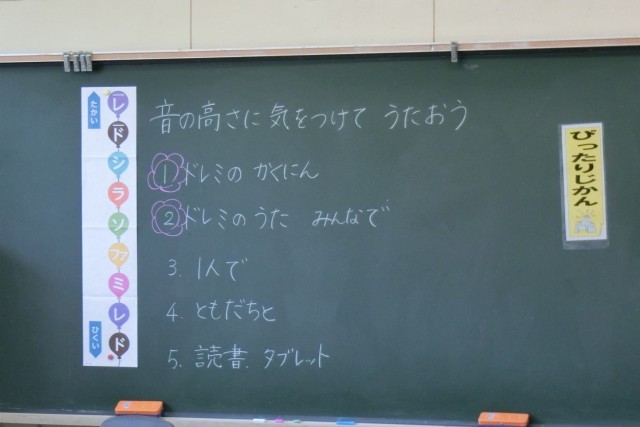 音の高さに気をつけて うたおう
① ドレミの かくにん
② ドレミのうた みんなで
3. 1人で
4. ともだちと
5. 読書. タブレット
たかい
レ
ド
シ
ラ
ソ
ファ
ミ
レ
ド
ひくい
ぴったりじかん